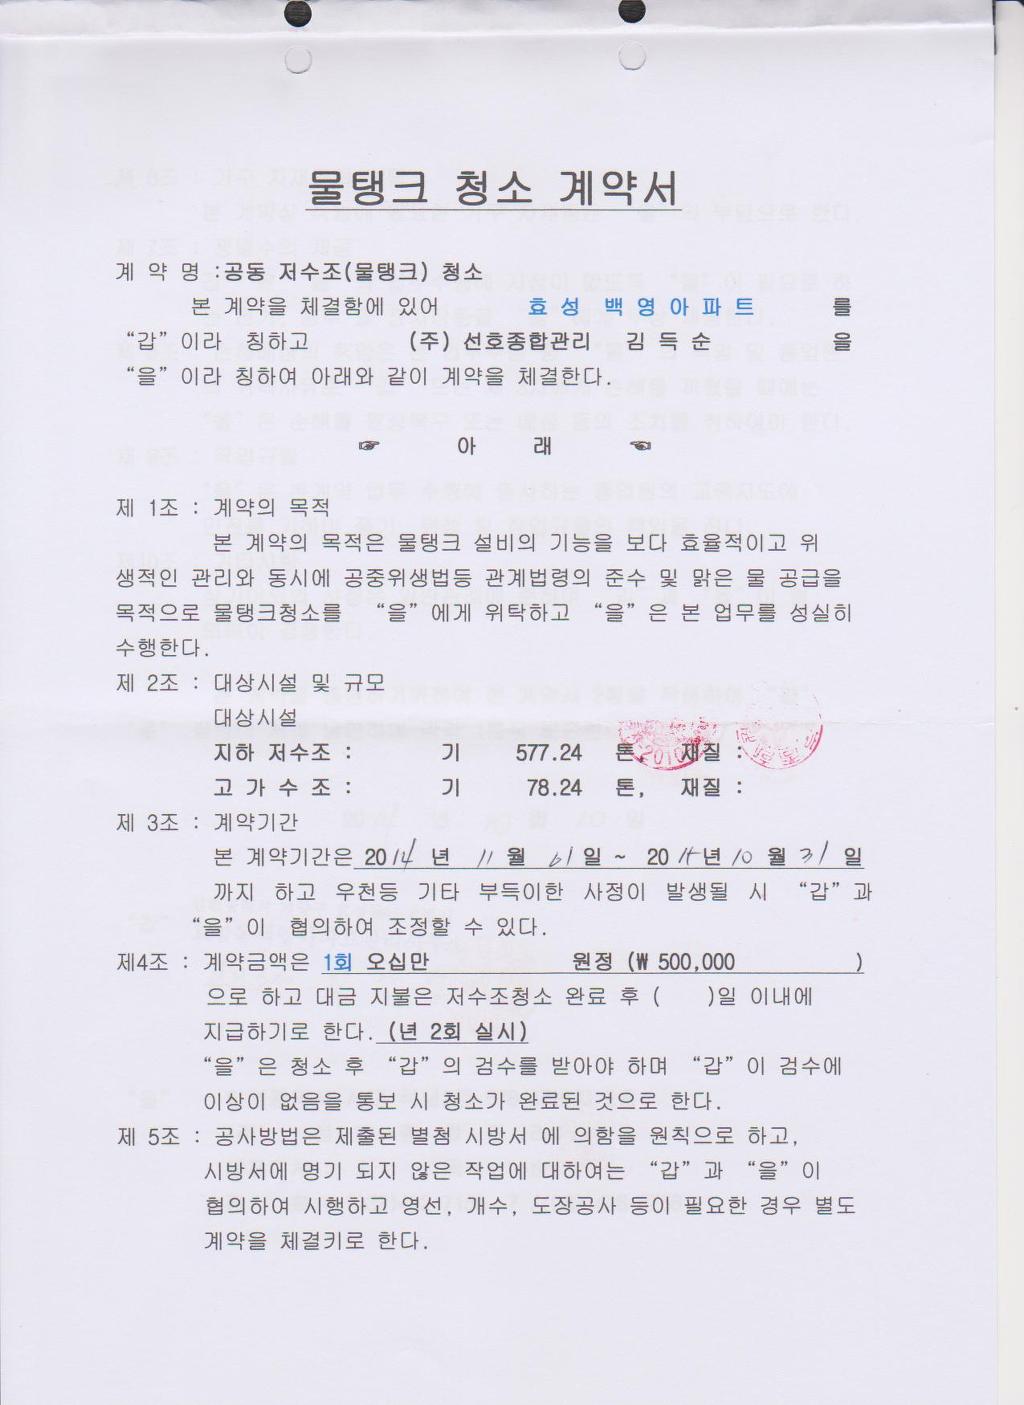 물탱크 청소 계약서
계 약 명 :공동 저수조(물탱크) 청소
본 계약을 체결함에 있어 효성 백영아파트 를
“갑”이라 칭하고 (주) 선호종합관리 김득순 을
“을”이라 칭하여 아래와 같이 계약을 체결한다.
☞ 아 래 ☜
제 1조 : 계약의 목적
본 계약의 목적은 물탱크 설비의 기능을 보다 효율적이고 위
생적인 관리와 동시에 공중위생법등 관계법령의 준수 및 맑은 물 공급을
목적으로 물탱크청소를 “을”에게 위탁하고 “을”은 본 업무를 성실히
수행한다.
제 2조 : 대상시설 및 규모
대상시설
지하 저수조 : 기 577.24 톤, 재질 :
고 가 수 조 : 기 78.24 톤, 재질 :
제 3조 : 계약기간
본 계약기간은 2014 년 11 월 일 ~ 20 년 10 월 31 일
까지 하고 우천등 기타 부득이한 사정이 발생될 시 “갑”과
“을”이 협의하여 조정할 수 있다.
제4조 : 계약금액은 1회 오십만 원정 (₩ 500,000 )
으로 하고 대금 지불은 저수조청소 완료 후 ( )일 이내에
지급하기로 한다. (년 2회 실시)
“을”은 청소 후 “갑”의 검수를 받아야 하며 “갑”이 검수에
이상이 없음을 통보 시 청소가 완료된 것으로 한다.
제 5조 : 공사방법은 제출된 별첨 시방서 에 의함을 원칙으로 하고,
시방서에 명기 되지 않은 작업에 대하여는 “갑”과 “을”이
협의하여 시행하고 영선, 개수, 도장공사 등이 필요한 경우 별도
계약을 체결키로 한다.